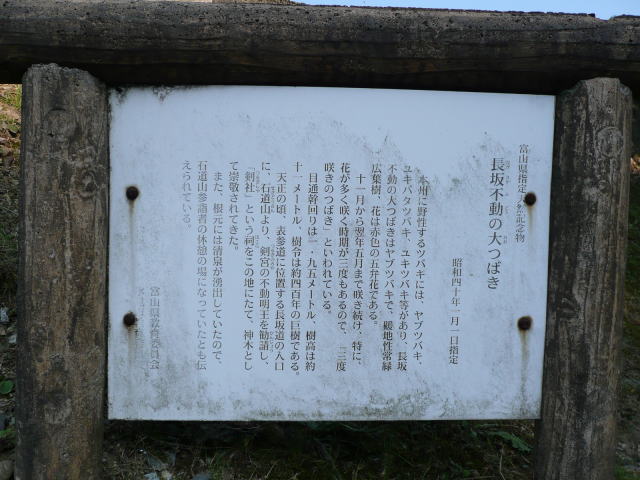 富山県指定天然記念物
長坂不動の大つばき
昭和四十年一月一日指定
本州に野性するツバキには、ヤブツバキ、
ユキバタツバキ、ユキツバキ等があり、長坂
不動の大つばきはヤブツバキで、暖地性常緑
広葉樹、花は赤色の五弁花である。
十一月から翌年五月まで咲き続け、特に、
花が多く咲く時期が三度もあるので、「三度
咲きのつばき」といわれている。
目通幹回りは一・九五メートル、樹高は約
十一メートル、樹令は約四百年の巨樹である。
天正の頃、表参道に位置する長坂道の入口
に、石道山より、剣宮の不動明王を勧請し、
「剣社」という祠をこの地にたて、神木とし
て崇敬されてきた。
また、根元には清泉が湧出していたので、
石道山参詣者の休憩の場になっていたとも伝
えられている。
富山県教育委員会